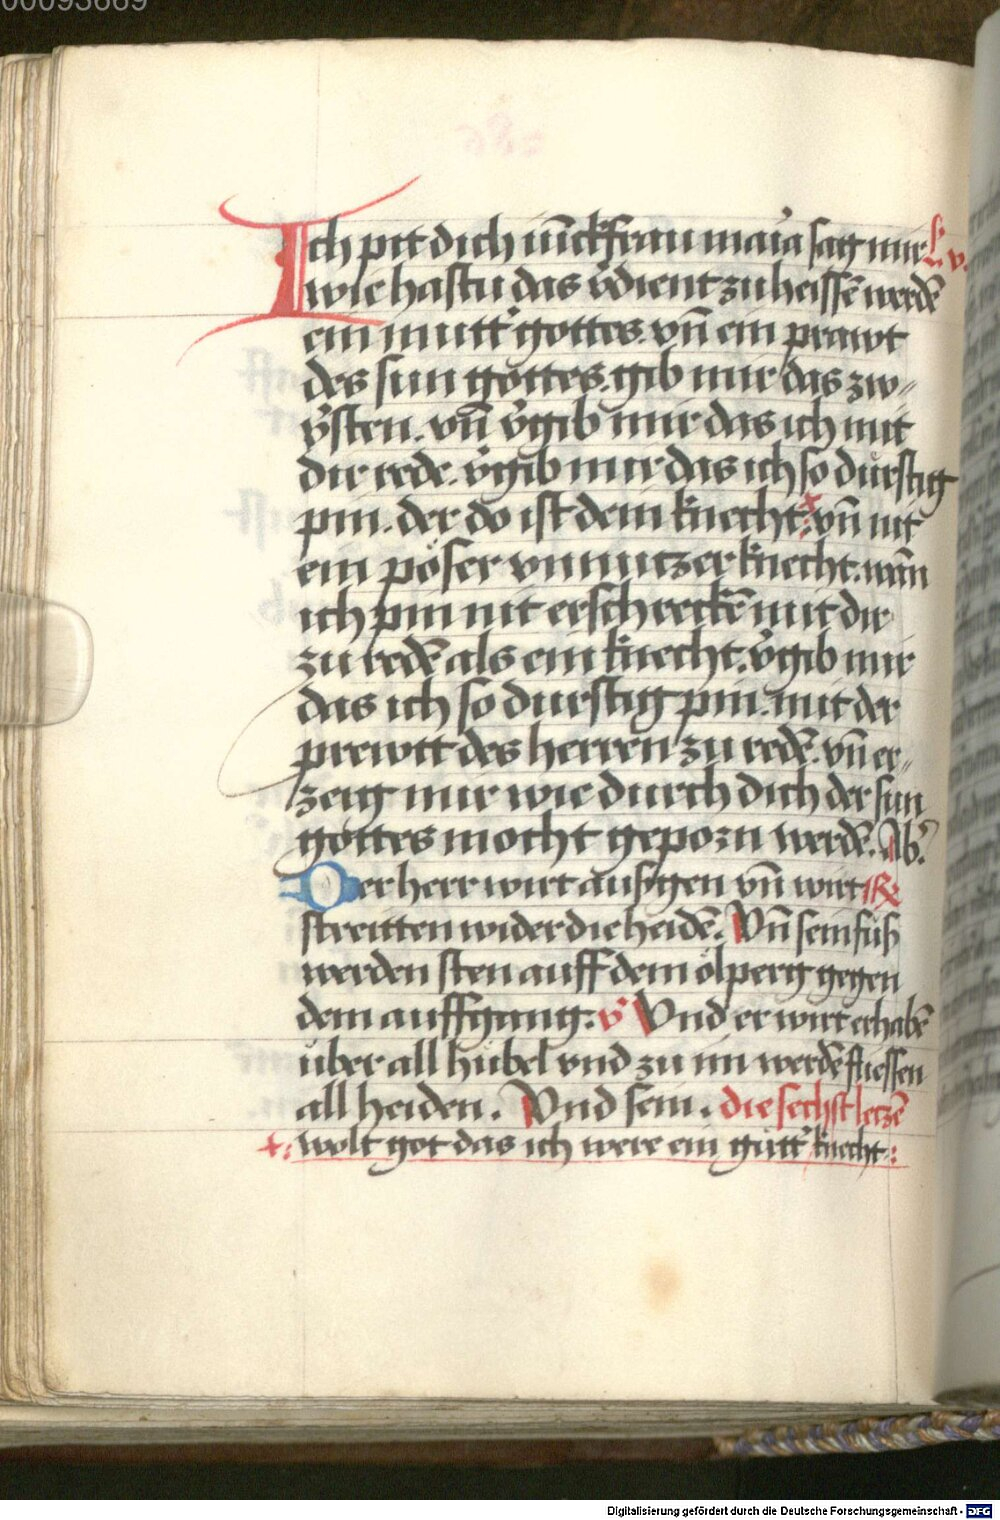 00093669
Ich pit dich iūckfrau maria sag mir L v.
wie hastu das v̓dient zu heissē werdē
ein mutt̓ gottes. vn̄ ein prawt
des sun gottes. gib mir das zw⸗
v̓sten. vn̄ v̓gib mir das ich mit
dir rede. v̓gib mir das ich so durstig
pin. der do ist dein knecht + vn̄ nit
ein pöser vnnutzer knecht. wān
ich pin nit erschreckē mit dir
zu redē als ein knecht. v̓gib mir
das ich so durstig pin. mit der
prewtt des herren zu redē. vn̄ er⸗
zeig mir wie durch dich der sun
gottes mocht geporn werdē. Ab̓
Der herr wirt ausgen vn̄ wirt R
streitten wider die heidē. Vn̄ sein füß
werden sten auff dem ölperg gegen
dem auffgang. v̓ Vnd er wirt erhabē
über all hübel vnd zu im werdē fliessen
all heiden. Vnd sein. die sechst letzē
+: wolt got das ich were ein gutt̓ knecht:
Digitalisierung gefördert durch die Deutsche Forschungsgemeinschaft - DFG